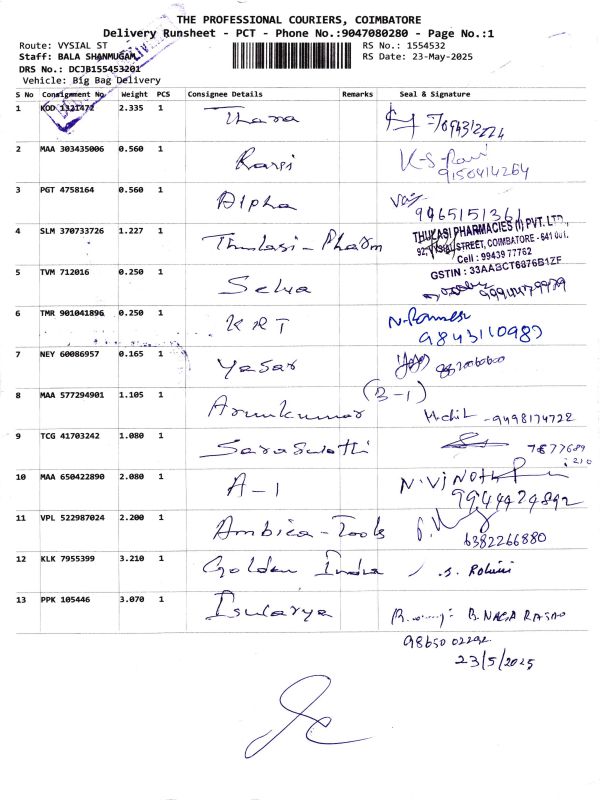 THE PROFESSIONAL COURIERS, COIMBATORE
Delivery Runsheet - PCT - Phone No.:9047080280 - Page No.:1
Route: VYSIAL ST RS No.: 1554532
Staff: BALA SHANMUGAM RS Date: 23-May-2025
DRS No.: DCJB155453201
Vehicle: Big Bag Delivery
S No Consignment No Weight PCS Consignee Details Remarks Seal & Signature
1 KOD 1321472 2.335 1 Thara
2 MAA 303435006 0.560 1 Ravi K-S-Ravi
9150414264
3 PGT 4758164 0.560 1 Alpha
9465151361
4 SLM 370733726 1.227 1 Thulasi-Pharm THULASI PHARMACIES (I) PVT. LTD.,
92, VYSIAL STREET, COIMBATORE - 641 001.
Cell : 99439 77762
GSTIN : 33AABCT6876B1ZF
5 TVM 712016 0.250 1 Selva
6 TMR 901041896 0.250 1 KRT N.Ramesh
9843110987
7 NEY 60086957 0.165 1 Yasar
8 MAA 577294901 1.105 1 Arunkumar (B-1)
-9498174722
9 TCG 41703242 1.080 1 Saraswathi 7877689
210
10 MAA 650422890 2.080 1 A-1 N.VINOTH
9944424892
11 VPL 522987024 2.200 1 Ambica-Tools
6382266880
12 KLK 7955399 3.210 1 Golden India S. Rohini
13 PPK 105446 3.070 1 Isularya B. NAGA RAJAO
98650 02292
23/5/2025